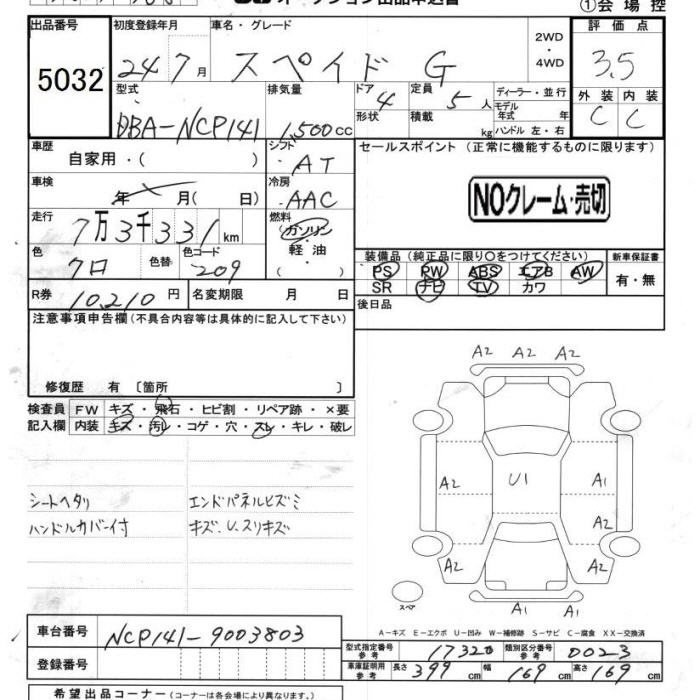 ①会 場 控
出品番号 初度登録年月 車名・グレード 2WD ・ 4WD 評 価 点
5032 24 7 月 スペイド G 3.5
型式 排気量 ドア 4 定員 5 人 ディーラー・並行 外 装 内 装
DBA-NCP141 1,500 cc 形状 積載 kg モデル年式 年 C C
ハンドル 左・右
車歴 シフト セールスポイント (正常に機能するものに限ります)
自家用・( ) AT
車検 冷房 NOクレーム・売切
年 月( 日) AAC
走行 燃料
7万3千331km ガソリン・軽油・( )
色 色替 色コード 装備品(純正品に限り○をつけてください) 新車保証書
クロ 209 PS PW ABS エアB AW 有・無
SR ナビ TV カワ
R券 10,210 円 名変期限 月 日 後日品
注意事項申告欄(不具合内容等は具体的に記入して下さい)
修復歴 有 〔箇所 〕
検査員 FW キズ・飛石・ヒビ割・リペア跡・×要
記入欄 内装 キズ・汚レ・コゲ・穴・スレ・キレ・破レ
シートヘタリ エンドパネルヒズミ
ハンドルカバー付 キズ、U、スリキズ
A2 A2 A2
A2 U1 A1
A2
A2 A2
スペア A1 A1
A－キズ E－エクボ U－凹み W－補修跡 S－サビ C－腐食 XX－交換済
車台番号 NCP141-9003803
型式指定番号 参考 17320 類別区分番号 参考 0023
登録番号 車庫証明用 参考 長さ 399 cm 幅 169 cm 高さ 169 cm
希望出品コーナー(コーナーは各会場により異なります。)